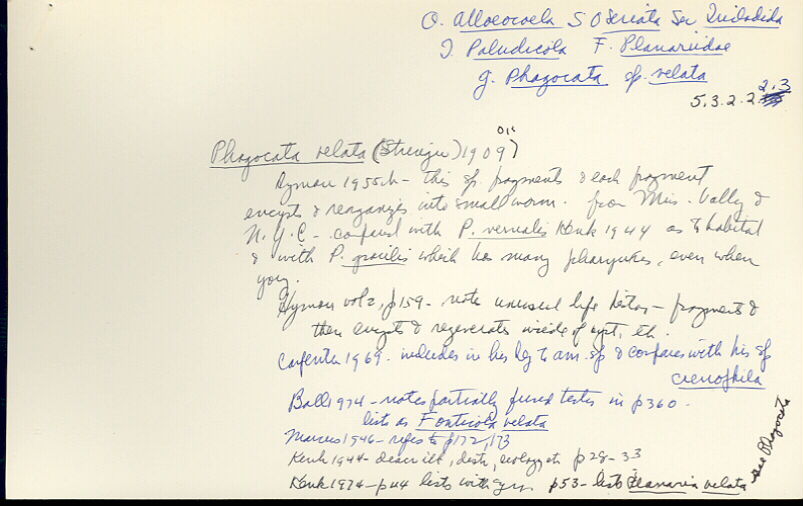 O. Alloeocoela S O Seriata Sec Tricladida
I. Paludicola F. Planariidae
g. Phagocata sp. velata
5.3.2.2.2.3
Phagocata velata (Stringer) 1909)
Hyman 1955b - this sp. fragments & each fragment
encysts & reorganizes into small worm. from Miss. Vally &
N.Y.C - confused with P. vernalis Kenk 1944 as to habitat
& with P. gracilis which has many pharynxes, even when
yong.
Hyman vol 2, p159 - note unusual life history - fragments &
then encysts & regenerates inside of cyst, etc.
Carpenter 1969. includes in his key to am. sp & compares with his sp
crenophila
Ball 1974 - notes partially fused testes in p360.
lists as Fonticola velata
Marcus 1946 - refers to p172, 173
Kenk 1944 - describe, distr, ecology etc p28-33
Kenk 1974 - p44 lists with syn. p53 - lists Planaria velata see Phagocata